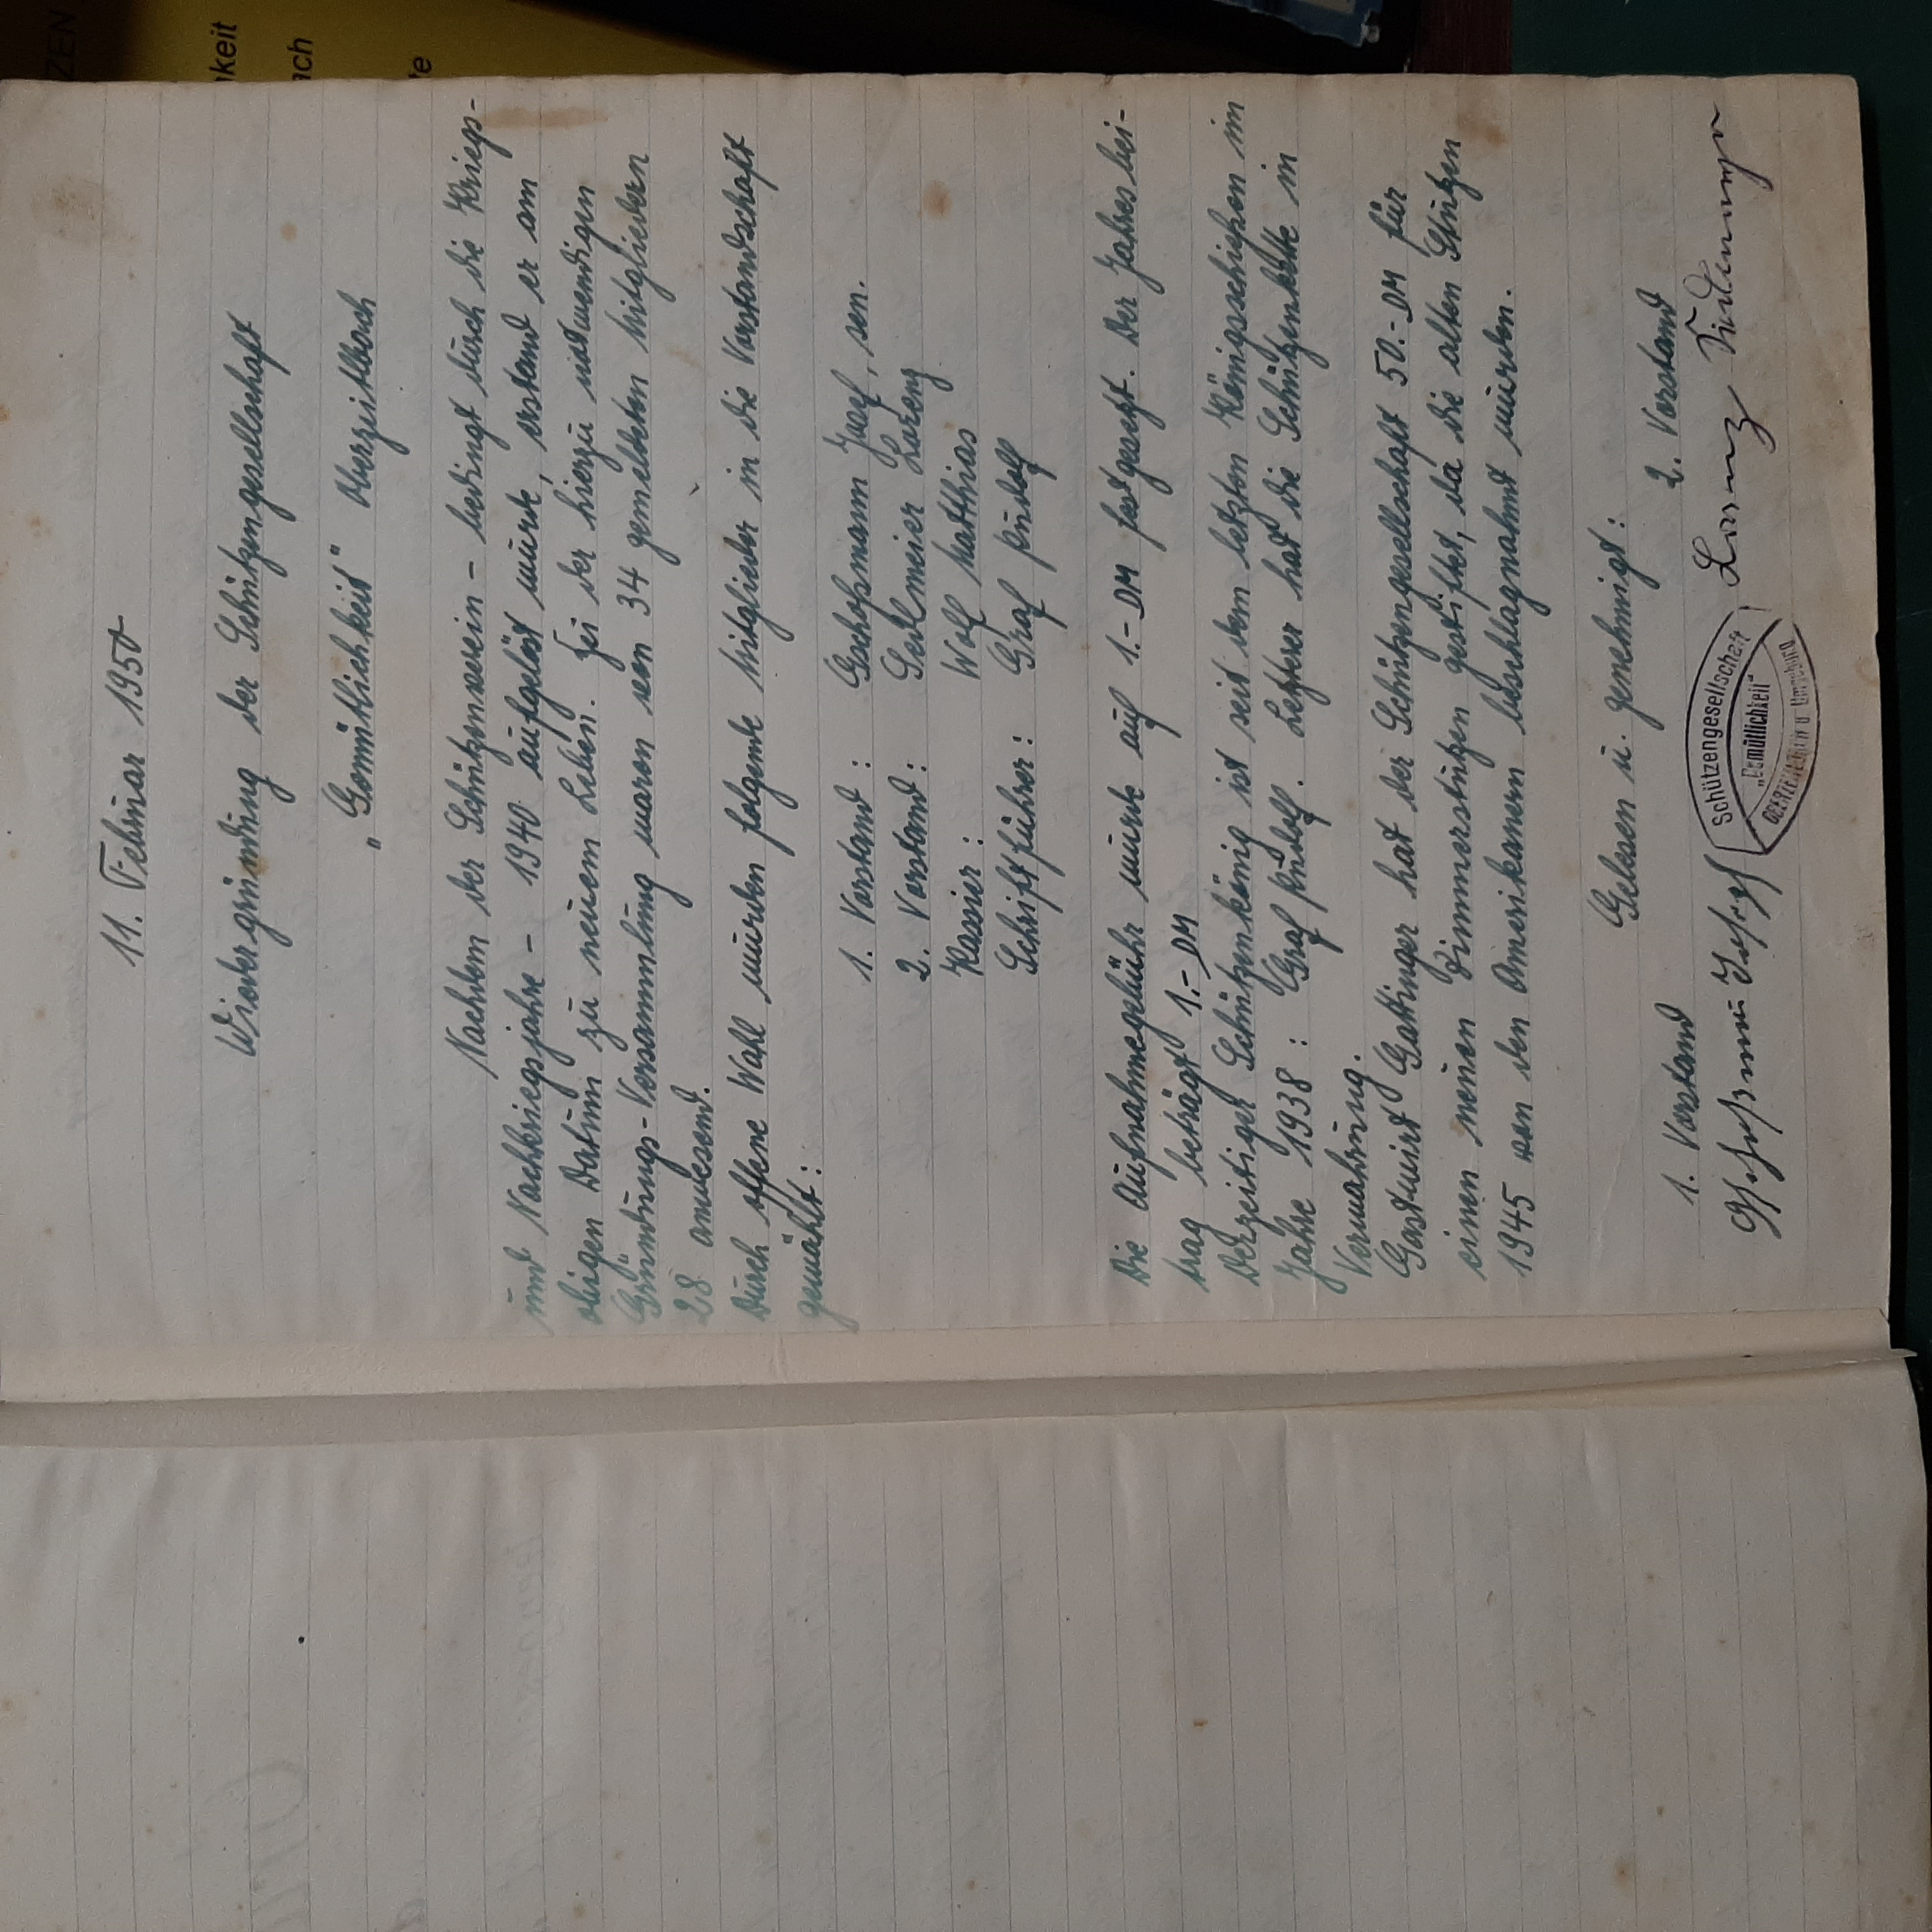 11. Februar 1950
Wiedergründung der Schützengesellschaft
„Gemütlichkeit" Oberzeitlbach
Nachdem der Schützenverein - bedingt durch die Kriegs-
und Nachkriegsjahre - 1940 aufgelöst wurde, erstand er am
obigen Datum zu neuem Leben. Bei der hierzu notwendigen
Gründungs-Versammlung waren von 34 gemeldeten Mitgliedern
28 anwesend.
Durch offene Wahl wurden folgende Mitglieder in die Vorstandschaft
gewählt:
1. Vorstand: Gschoßmann Josef, sen.
2. Vorstand: Seilmeier Lorenz
Kassier: Wolf Matthias
Schriftführer: Graf Rudolf
Die Aufnahmegebühr wurde auf 1.- DM festgesetzt. Der Jahresbei-
trag beträgt 1.- DM
Derzeitiger Schützenkönig ist seit dem letzten Königsschießen im
Jahre 1938: Graf Rudolf. Letzterer hat die Schützenkette in
Verwahrung.
Gastwirt Gattinger hat der Schützengesellschaft 50.- DM für
einen neuen Zimmerstutzen gestiftet, da die alten Stutzen
1945 von den Amerikanern beschlagnahmt wurden.
Gelesen u. genehmigt:
1. Vorstand 2. Vorstand
Gschoßmann Josef Lorenz
Schützengesellschaft
„Gemütlichkeit"
OBERZEITLBACH u Umgebung
ZEN
keit
ach
te